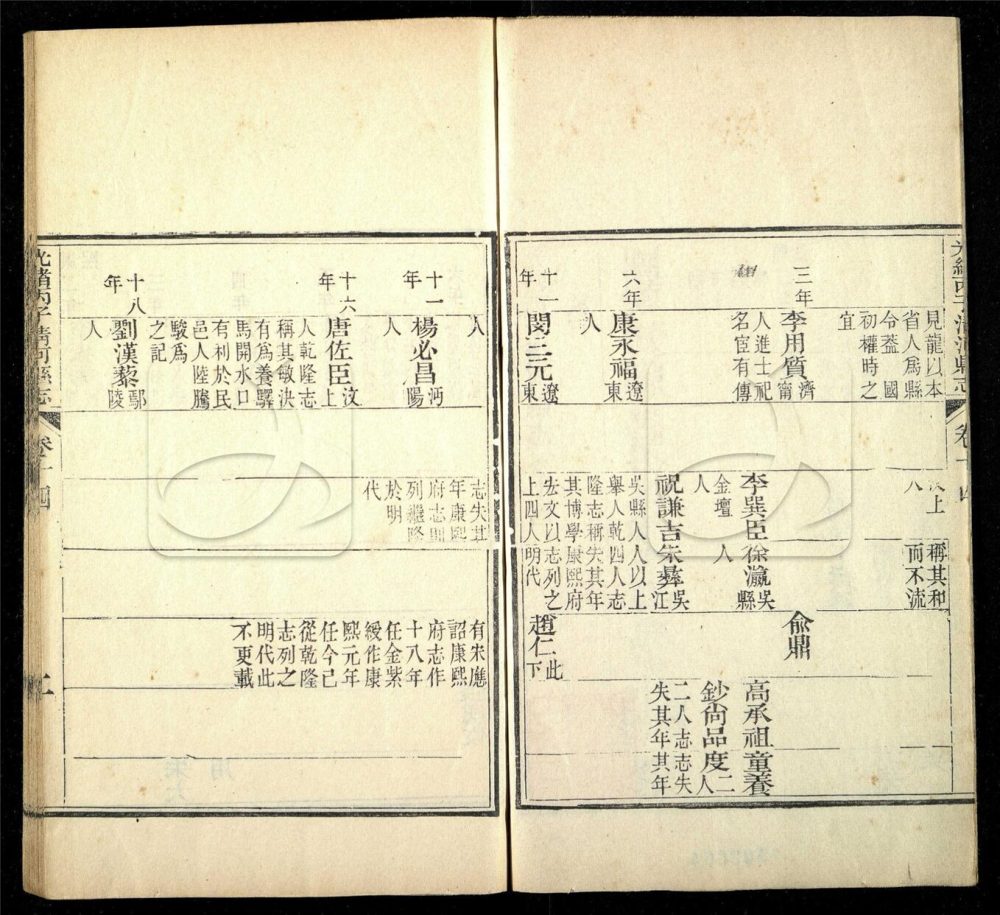 見龍以本
省人爲縣
令葢國
初權時之
宜
三年
李用質濟
甯
人進士祀
名宦有傳
六年
康永福遼
東
人
十一
年
閔三元遼
東
上
人
稱其和
而不流
李巽臣
金壇
人
徐瀛吳
縣
人
祝謙吉
吳縣人
舉人乾
隆志稱
其博學
宏文以
上四人
朱彞吳
江
人以上
四人志
失其年
康熙府
志列之
明代
俞鼎
趙仁此
下
高承祖
鈔尙品
二人志
失其年
童養
度二
人
志失
其年
人
十一
年
楊必昌沔
陽
人
十六
年
唐佐臣汶
上
人乾隆志
稱其敏決
有爲養驛
馬開水口
有利於民
邑人陸騰
駿爲
之記
十八
年
劉漢藜鄢
陵
人
志失其
年康熙
府志則
列繼隆
於明
代
有宋應
詔康熙
府志作
十八年
任金紫
綬作康
熙元年
任今己
從乾隆
志列之
明代此
不更載
光緒丙子清河縣志
卷十四
二